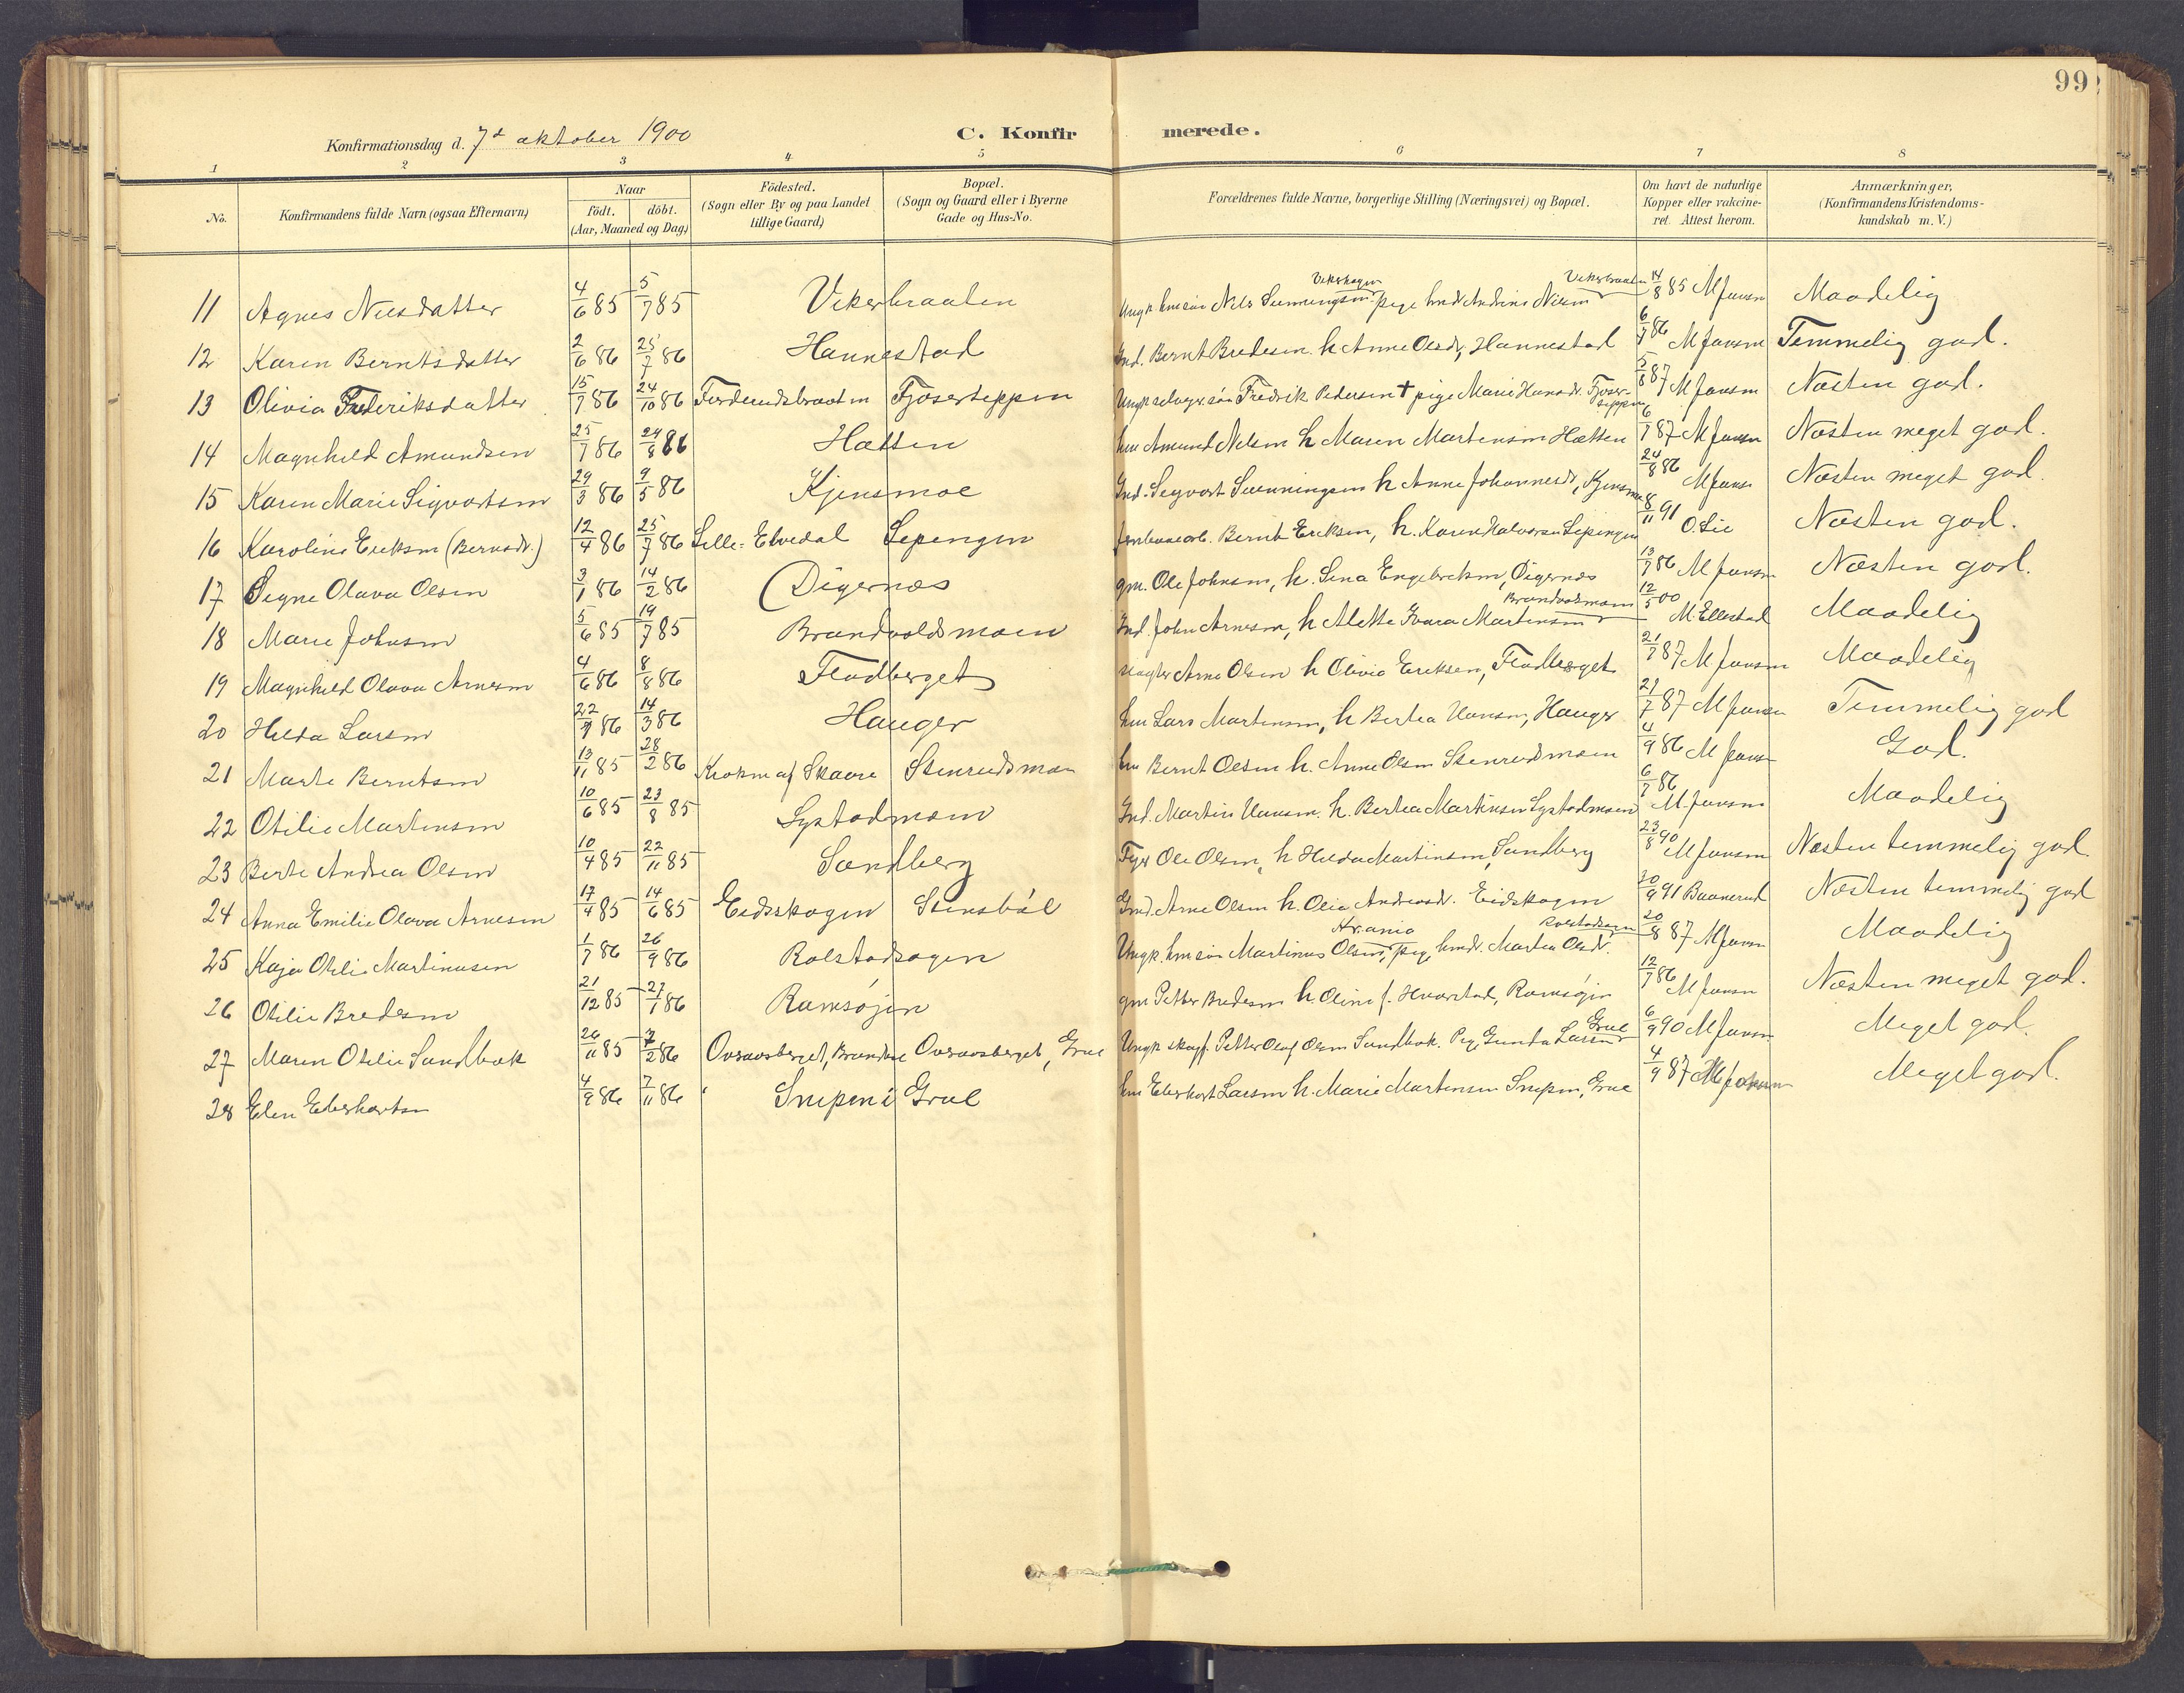 99
Konfirmationsdag d. 7de oktober 1900 C. Konfirmerede.
1 2 3 4 5 6 7 8
No. Konfirmandens fulde Navn (ogsaa Efternavn) Naar födt. döbt. (Aar, Maaned og Dag) Födested. (Sogn eller By og paa Landet tillige Gaard) Bopæl. (Sogn og Gaard eller i Byerne Gade og Hus-No. Forældrenes fulde Navne, borgerlige Stilling (Næringsvei) og Bopæl. Om havt de naturlige Kopper eller vakcineret. Attest herom. Anmærkninger, (Konfirmandens Kristendomskundskab m. V.)
11 Agnes Nilsdatter 4/6 85 5/7 85 Vekerbraaten Ungk. hmsøn Nils Svenningsen Vekerhagen pige hmdr Andrine Nilsen Vekerbraaten 14/8 85 M Jensen Maadelig
12 Karen Berntsdatter 2/6 86 25/7 86 Hannestad Ind. Bernt Bredesen h Anne Olsdr, Hannestad 6/7 86 M Jensen Temmelig god.
13 Olivia Frederiksdatter 15/7 86 24/10 86 Fjøserteppen Ungk selveyersøn Fredrik Pedersen † pige Marie Hansdr. Fjøserteppen 5/8 87 M Jensen Næsten god.
14 Magnhild Amundsen 25/7 86 24/8 86 Hætten hm Amund Nilsen h Maren Martinsen Hætten 6/7 87 M Jensen Næsten meget god.
15 Karen Marie Sigvartsen 29/3 86 9/5 86 Kjensmoe Ind. Segvart Svenningsen h Anne Johannesdr, Kjensmoe 24/8 86 M Jensen Næsten meget god.
16 Karoline Eriksen (Bernsdr.) 12/4 86 25/7 86 Lille-Elvedal Sepengen Jernbanearb. Bernt Eriksen, h. Karen Halvorsen Sepengen 8/11 91 O Lie Næsten god.
17 Signe Olava Olsen 3/1 86 14/2 86 Digernæs gm. Ole Johnsen, h. Lina Engebretsen, Digernæs 13/7 86 M Jensen Næsten god.
18 Marie Johnsen 5/6 85 19/7 85 Brandvoldsmoen Ind. John Arnesen, h Alette Ivara Martinsen Brandvoldsmoen 12/5 00 M. Ellestad Maadelig
19 Magnhild Olava Arnesen 4/6 86 8/8 86 Fladberget slagter Arne Olsen h Olivia Eriksen, Fladberget 21/7 87 M Jensen Maadelig
20 Hilda Larsen 86 14/3 86 Hauger hm Lars Martinsen, h Bertea Hansen, Hauger 21/7 87 M Jensen Temmelig god
21 Marte Berntsen 13/11 85 28/2 86 Kroken af Skaare Stenrudsmoen hm Bernt Olsen h. Anne Olsen Stenrudsmoen 4/9 86 M Jensen God.
22 Otilie Martinsen 10/6 85 23/8 85 Systadmoen Ind. Martin Hansen. h. Bertea Martinsen Systadmoen 6/7 86 M. Jensen Maadelig
23 Berte Andrea Olsen 10/4 85 22/11 85 Sandberg Eyer Ole Olsen, h Hilda Martinsen, Sandberg 23/8 90 M Jensen Næsten temmelig god.
24 Anna Emilie Olava Arnesen 17/4 85 14/6 85 Eidskogen Stensbøl Gmd. Arne Olsen h. Olia Andreasdr. Eidskogen 91 Baanerud Næsten temmelig god
25 Kaja Otilie Martinusen 1/7 86 26/9 86 Rolstadsagen Ungk. hmsøn Martinus Olsen, pige hmdr. Martea Olsdr. Rolstadsagen 20/8 87 M Jensen Maadelig
26 Otilie Bredesen 21/12 85 86 Ramsøjen gm Petter Bredesen h Oline f. Hvarstad, Ramsøjen 12/7 86 M Jensen Næsten meget god.
27 Maren Otilie Sandbæk 26/11 85 7/2 86 Ovraasberget, Brandval Ovraasberget, Grue Ungk skogf. Petter Olaf Olsen Sandbæk. Pige Gunda Larsen Grue 6/9 90 M Jensen Meget god.
28 Elen Eberhartsen 4/9 86 7/11 86 Snipen i Grue hm Eberhart Larsen h. Marie Martinsen Snipen, Grue 4/9 87 M Johnsen Meget god.